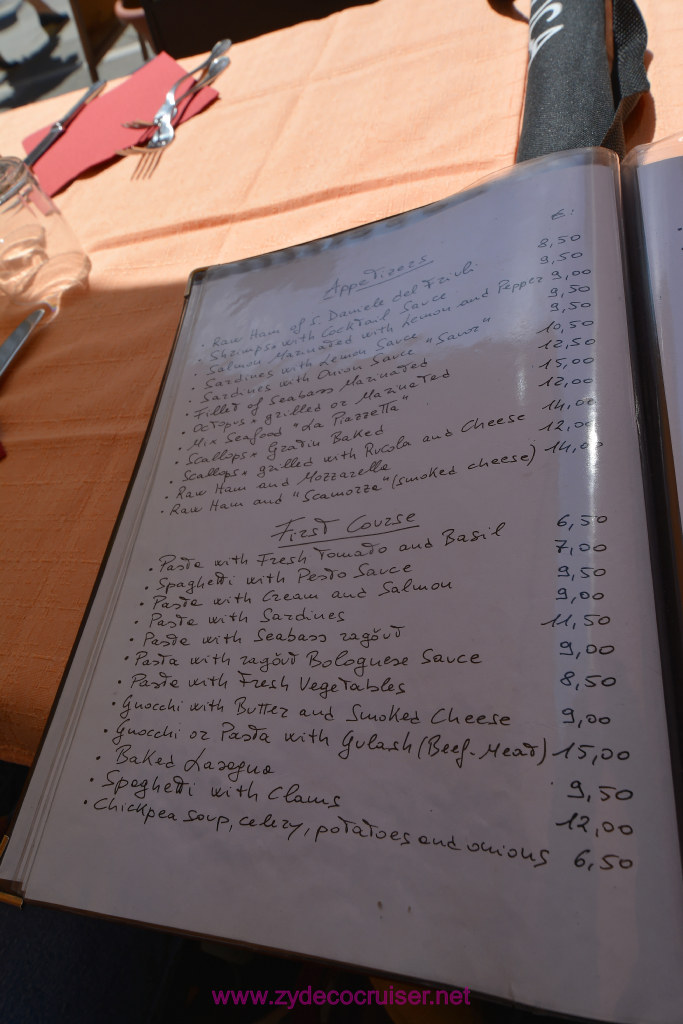 €:
Appetizers
• Raw Ham of S. Daniele del Friuli 8,50
• Shrimps* with Cocktail Sauce 9,50
• Salmon Marinated with Lemon and Pepper 9,00
• Sardines with Lemon Sauce 9,50
• Sardines with Onion Sauce "Savor" 9,50
• Fillet of Seabass Marinated 10,50
• Octopus* grilled or Marinated 12,50
• Mix Seafood "La Piazzetta" 15,00
• Scallops* Gratin Baked 12,00
• Scallops* grilled with Rucola and Cheese 14,00
• Raw Ham and Mozzarella 12,00
• Raw Ham and "Scamorza" (smoked cheese) 14,00
First Course
• Pasta with Fresh Tomato and Basil 6,50
• Spaghetti with Pesto Sauce 7,00
• Pasta with Cream and Salmon 9,50
• Pasta with Sardines 9,00
• Pasta with Seabass ragoût 11,50
• Pasta with ragoût Bolognese Sauce 9,00
• Pasta with Fresh Vegetables 8,50
• Gnocchi with Butter and Smoked Cheese 9,00
• Gnocchi or Pasta with Gulash (Beef-Meat) 15,00
• Baked Lasagna 9,50
• Spaghetti with Clams 12,00
• Chickpea soup, celery, potatoes and onions 6,50
www.zydecocruiser.net